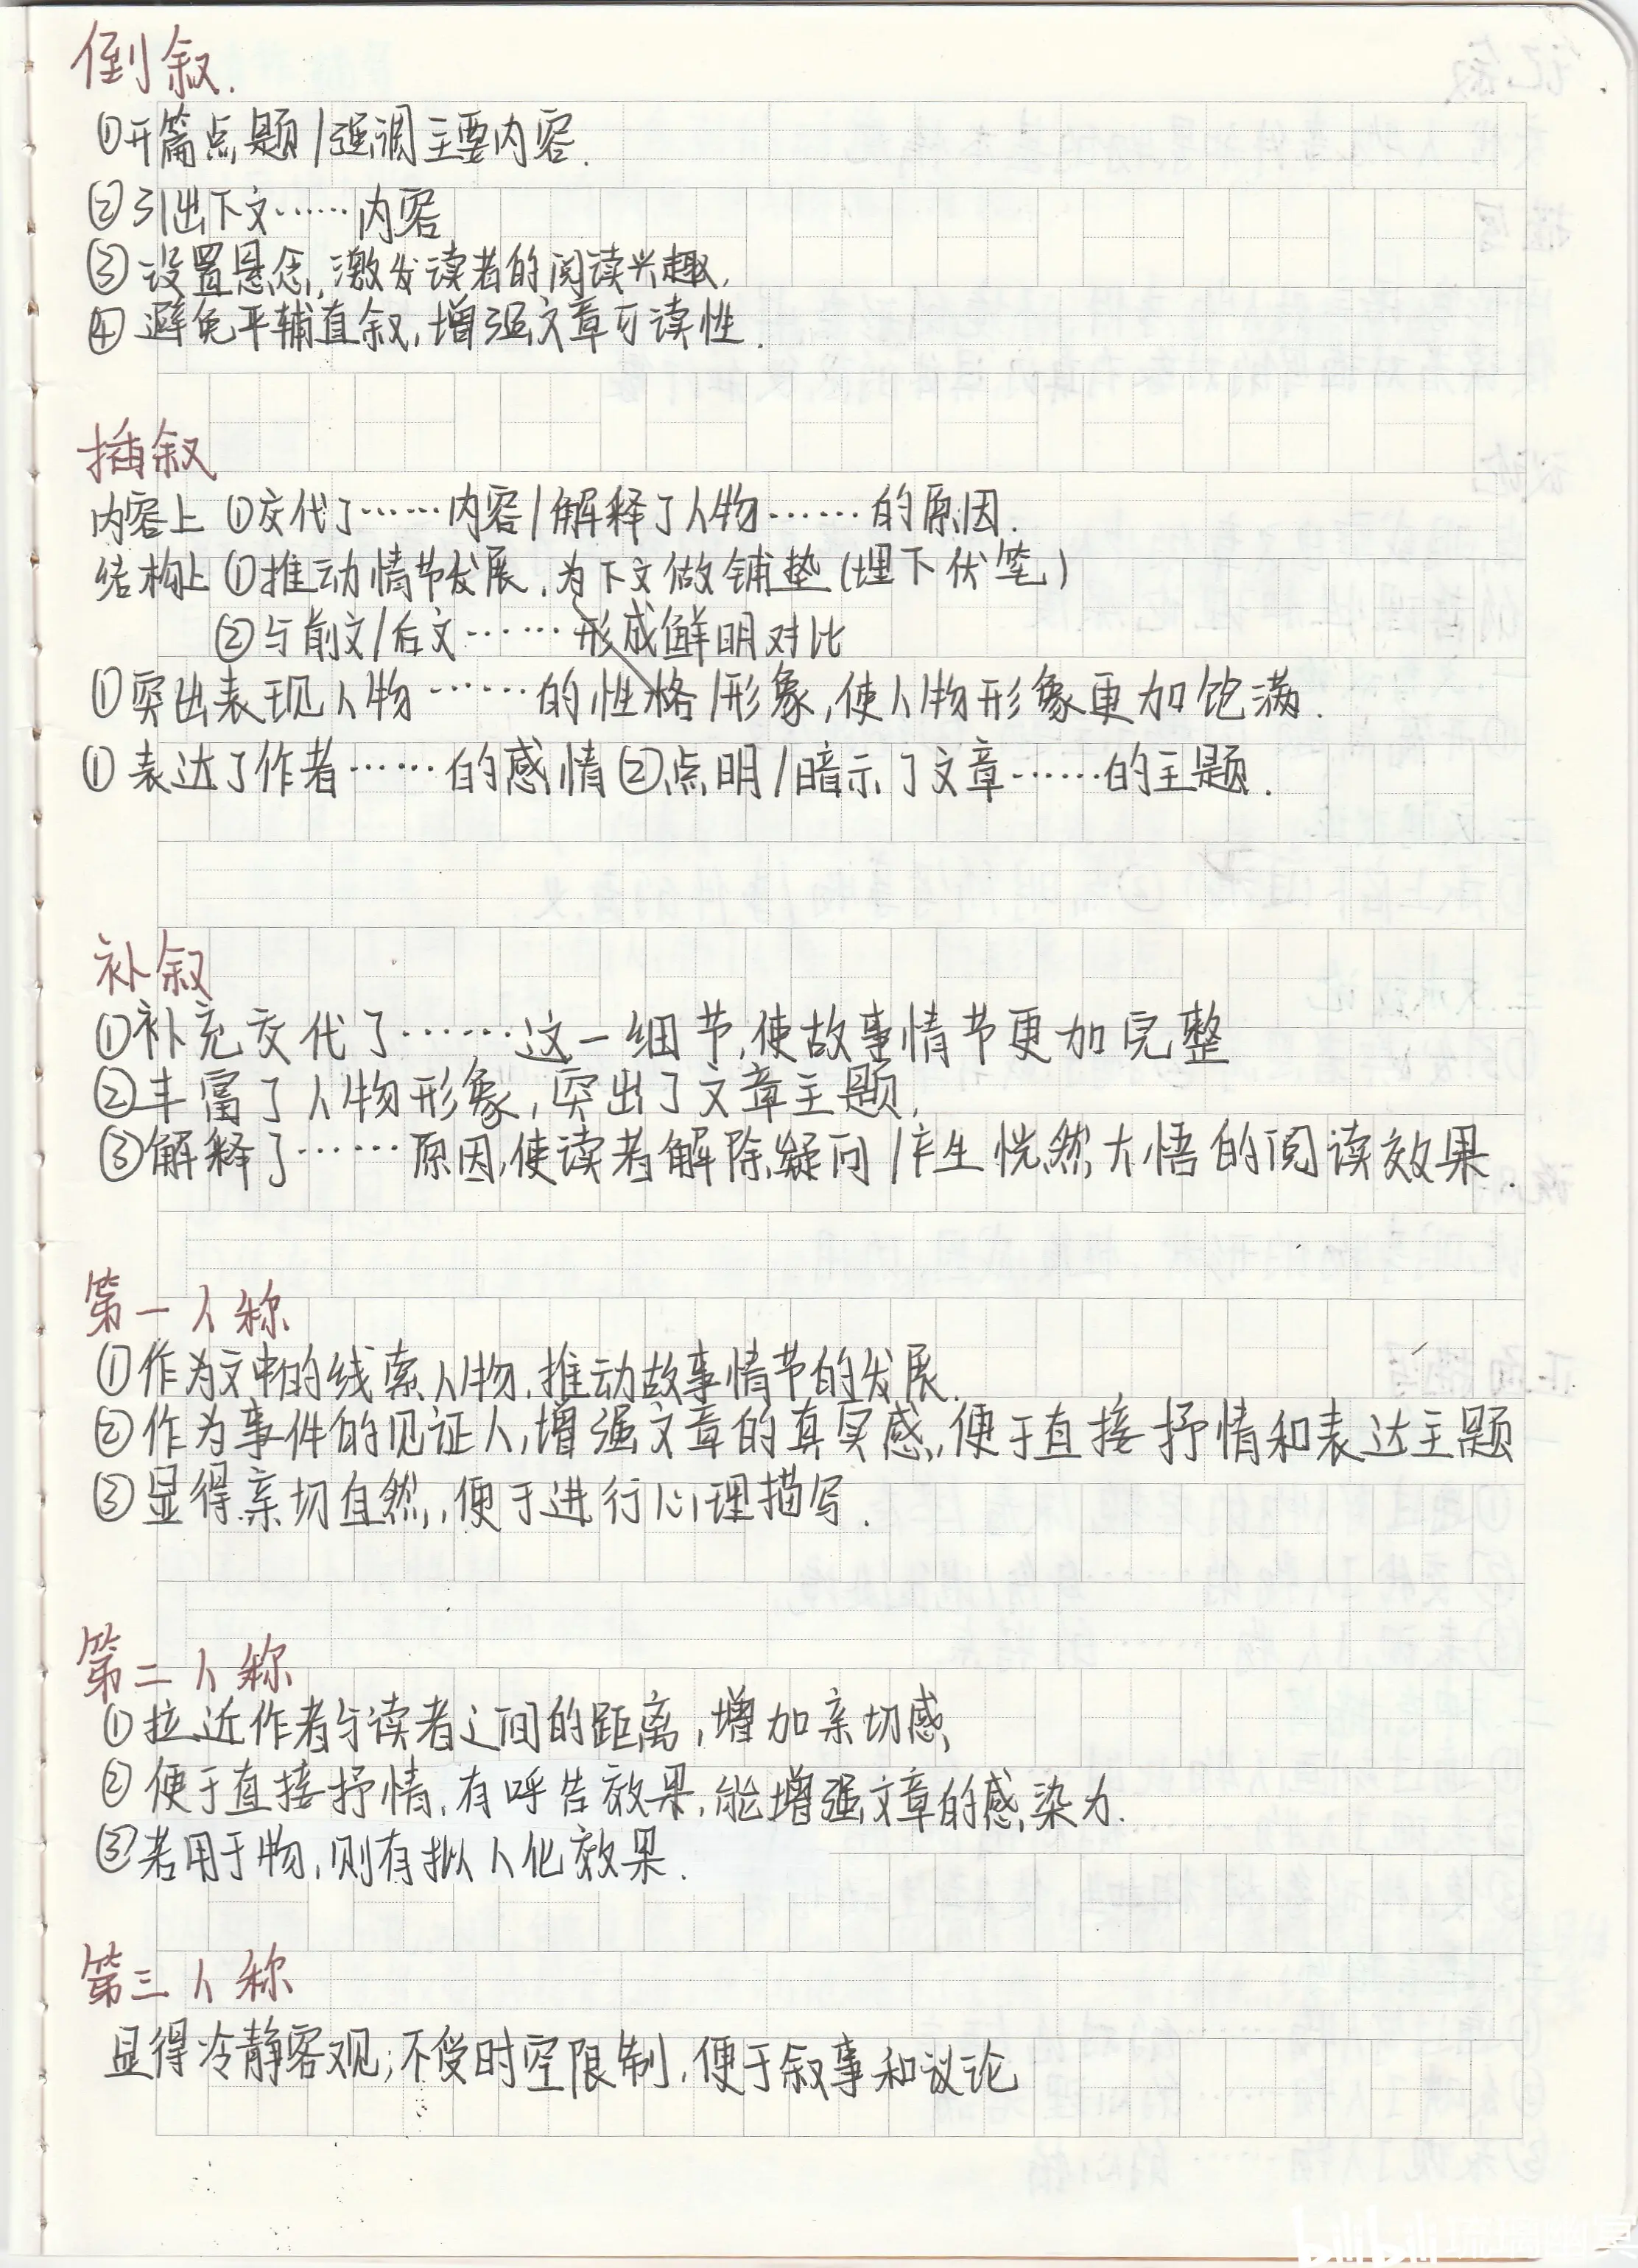 倒叙.
①开篇点题/强调主要内容.
②引出下文……内容
③设置悬念,激发读者的阅读兴趣,
④避免平辅直叙,增强文章可读性.
插叙
内容上 ①交代了……内容/解释了人物……的原因.
结构上 ①推动情节发展,为下文做铺垫(埋下伏笔)
②与前文/后文……形成鲜明对比
①突出表现人物……的性格/形象,使人物形象更加饱满.
①表达了作者……的感情②点明/暗示了文章……的主题.
补叙
①补充交代了……这一细节,使故事情节更加完整
②丰富了人物形象,突出了文章主题,
③解释了……原因,使读者解除疑问/产生恍然大悟的阅读效果.
第一人称
①作为文中的线索人物,推动故事情节的发展.
②作为事件的见证人,增强文章的真实感,便于直接抒情和表达主题
③显得亲切自然,便于进行心理描写.
第二人称
①拉近作者与读者之间的距离,增加亲切感,
②便于直接抒情,有呼告效果,能增强文章的感染力.
③若用于物,则有拟人化效果.
第三人称
显得冷静客观;不受时空限制,便于叙事和议论
bilibili 琉璃幽冥